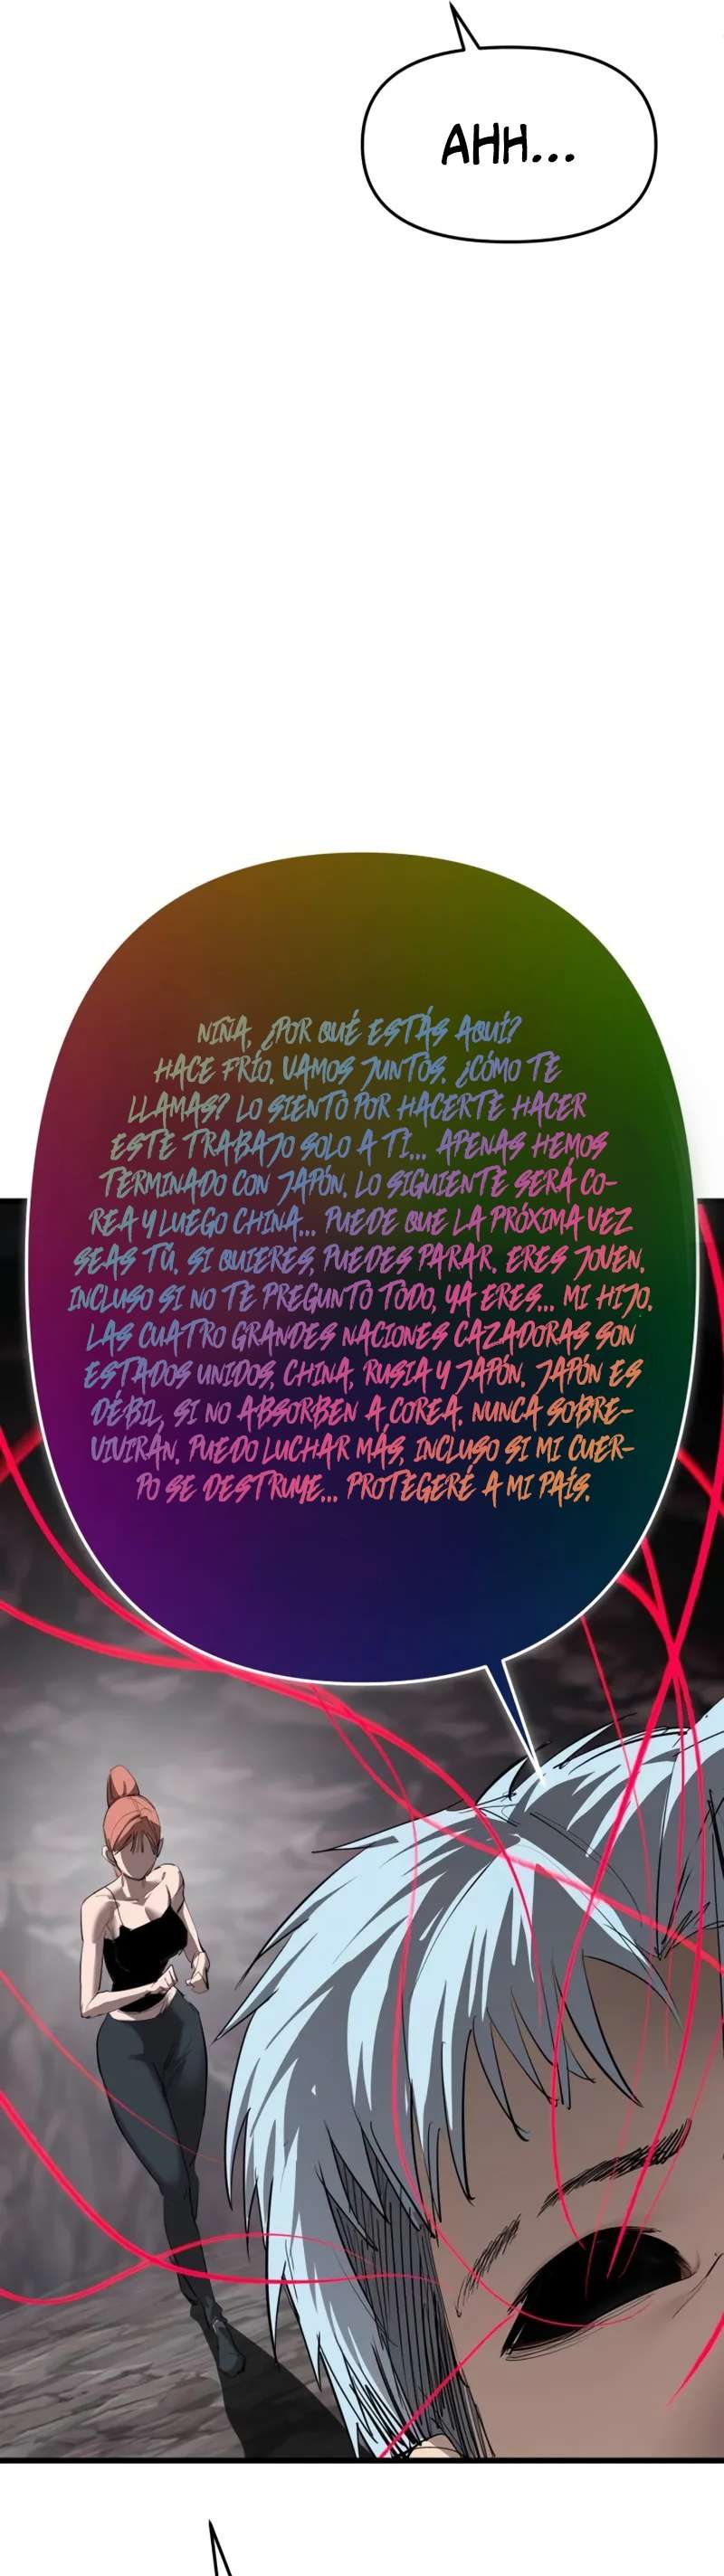 AHH...
NIÑA, ¿POR QUÉ ESTÁS AQUÍ?
HACE FRÍO, VAMOS JUNTOS, ¿CÓMO TE
LLAMAS? LO SIENTO POR HACERTE HACER
ESTE TRABAJO SOLO A TI... APENAS HEMOS
TERMINADO CON JAPÓN, LO SIGUIENTE SERÁ CO-
REA Y LUEGO CHINA... PUEDE QUE LA PRÓXIMA VEZ
SEAS TÚ, SI QUIERES, PUEDES PARAR, ERES JOVEN,
INCLUSO SI NO TE PREGUNTO TODO, YA ERES... MI HIJO,
LAS CUATRO GRANDES NACIONES CAZADORAS SON
ESTADOS UNIDOS, CHINA, RUSIA Y JAPÓN, JAPÓN ES
DÉBIL, SI NO ABSORBEN A COREA, NUNCA SOBRE-
VIVIRÁN, PUEDO LUCHAR MÁS, INCLUSO SI MI CUER-
PO SE DESTRUYE... PROTEGERÉ A MI PAÍS,